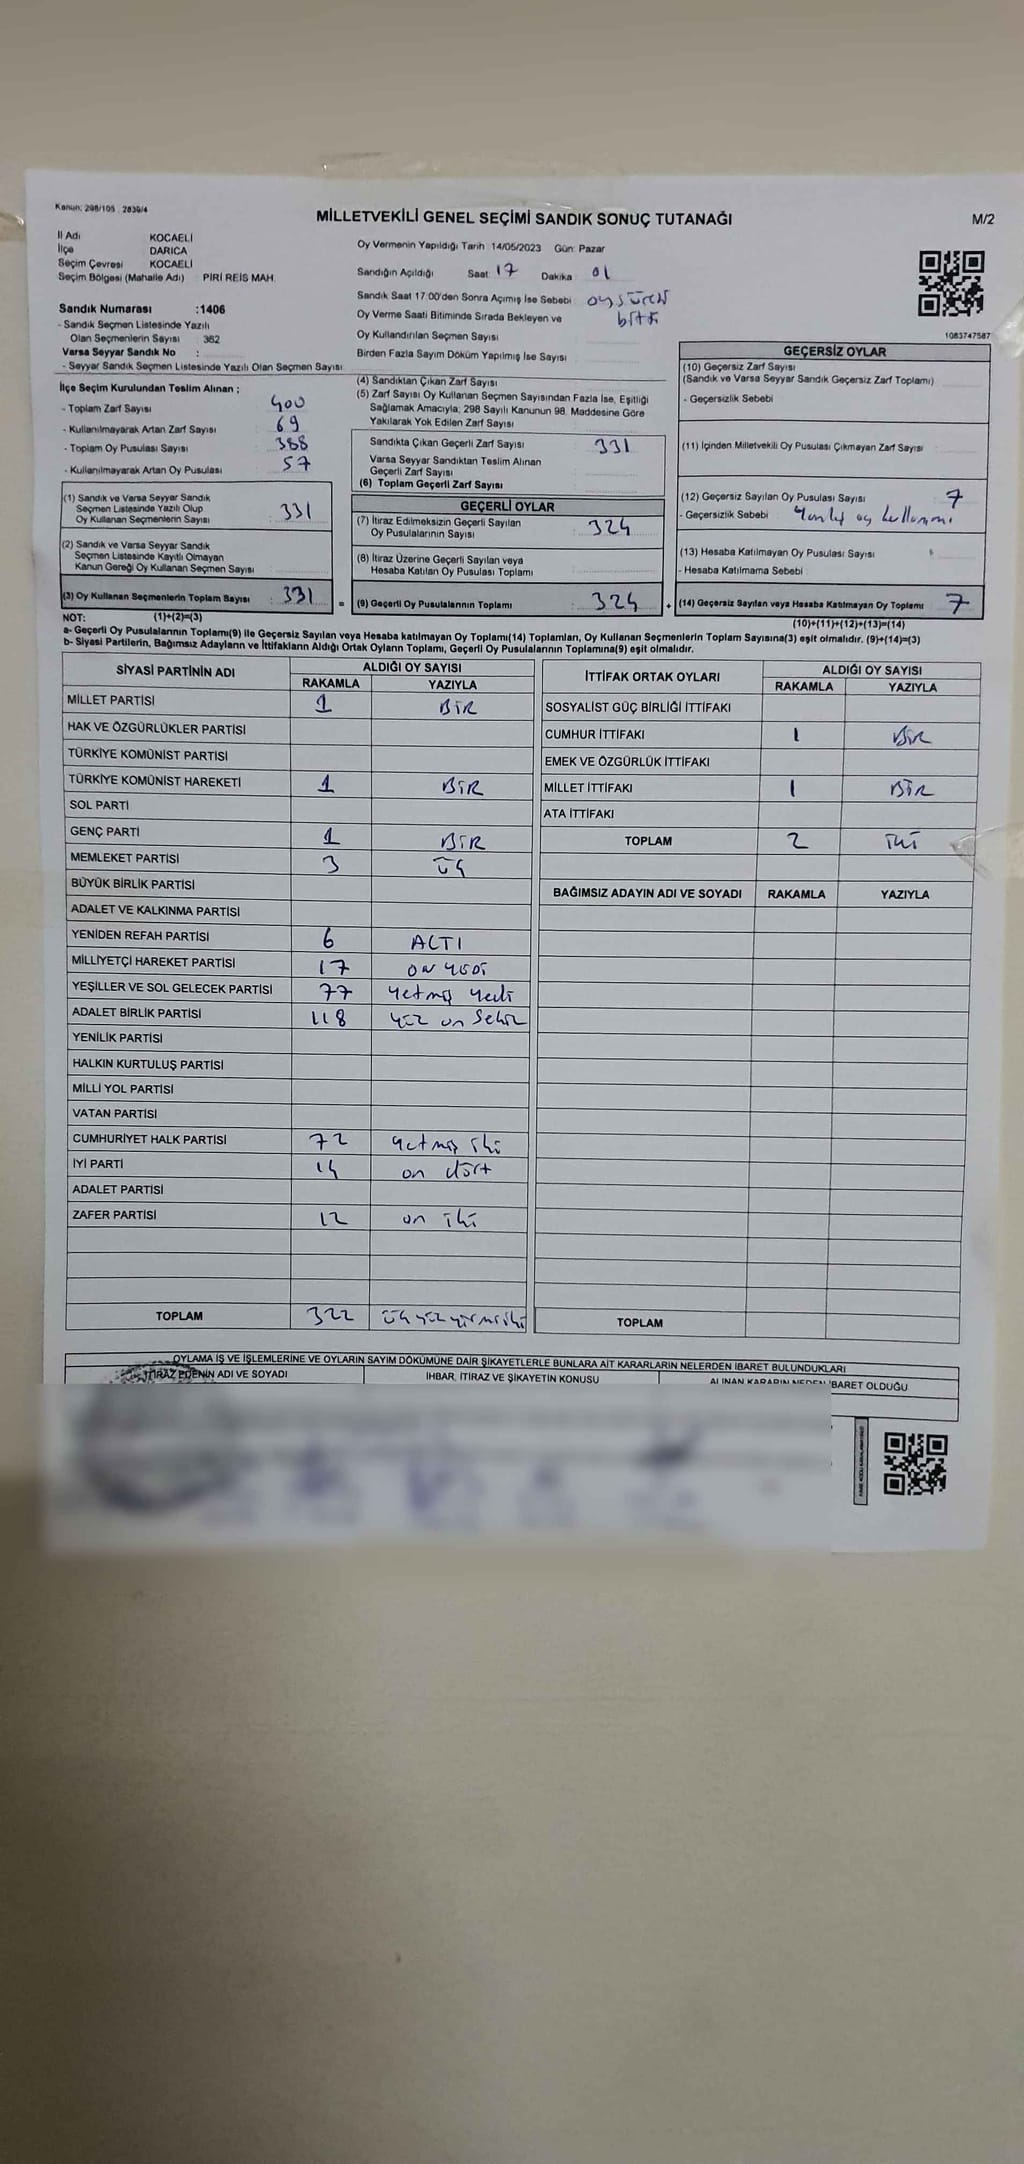 Kanun: 298/105 , 2839/4
MİLLETVEKİLİ GENEL SEÇİMİ SANDIK SONUÇ TUTANAĞI
M/2
İl Adı KOCAELİ
İlçe DARICA
Seçim Çevresi KOCAELİ
Seçim Bölgesi (Mahalle Adı) PİRİ REİS MAH.
Oy Vermenin Yapıldığı Tarih : 14/05/2023 Gün: Pazar
Sandığın Açıldığı Saat 17 Dakika 01
Sandık Saat 17:00'den Sonra Açımış İse Sebebi oy süresi
Oy Verme Saati Bitiminde Sırada Bekleyen ve bitti
Oy Kullandırılan Seçmen Sayısı
Birden Fazla Sayım Döküm Yapılmış İse Sayısı
1083747587
Sandık Numarası :1406
- Sandık Seçmen Listesinde Yazılı
Olan Seçmenlerin Sayısı : 362
Varsa Seyyar Sandık No :
- Seyyar Sandık Seçmen Listesinde Yazılı Olan Seçmen Sayısı
İlçe Seçim Kurulundan Teslim Alınan ;
- Toplam Zarf Sayısı 400
- Kullanılmayarak Artan Zarf Sayısı 69
- Toplam Oy Pusulası Sayısı 388
- Kullanılmayarak Artan Oy Pusulası 57
(1) Sandık ve Varsa Seyyar Sandık
Seçmen Listesinde Yazılı Olup
Oy Kullanan Seçmenlerin Sayısı 331
(2) Sandık ve Varsa Seyyar Sandık
Seçmen Listesinde Kayıtlı Olmayan
Kanun Gereği Oy Kullanan Seçmen Sayısı
(3) Oy Kullanan Seçmenlerin Toplam Sayısı 331
(1)+(2)=(3)
(4) Sandıktan Çıkan Zarf Sayısı
(5) Zarf Sayısı Oy Kullanan Seçmen Sayısından Fazla İse, Eşitliği
Sağlamak Amacıyla, 298 Sayılı Kanunun 98. Maddesine Göre
Yakılarak Yok Edilen Zarf Sayısı
Sandıkta Çıkan Geçerli Zarf Sayısı 331
Varsa Seyyar Sandıktan Teslim Alınan
Geçerli Zarf Sayısı
(6) Toplam Geçerli Zarf Sayısı
GEÇERLİ OYLAR
(7) İtiraz Edilmeksizin Geçerli Sayılan
Oy Pusulalarının Sayısı : 324
(8) İtiraz Üzerine Geçerli Sayılan veya
Hesaba Katılan Oy Pusulası Toplamı
= (9) Geçerli Oy Pusulalarının Toplamı : 324
GEÇERSİZ OYLAR
(10) Geçersiz Zarf Sayısı
(Sandık ve Varsa Seyyar Sandık Geçersiz Zarf Toplamı)
- Geçersizlik Sebebi
(11) İçinden Milletvekili Oy Pusulası Çıkmayan Zarf Sayısı
(12) Geçersiz Sayılan Oy Pusulası Sayısı 7
- Geçersizlik Sebebi : Yanlış oy kullanımı
(13) Hesaba Katılmayan Oy Pusulası Sayısı
- Hesaba Katılmama Sebebi
+ (14) Geçersiz Sayılan veya Hesaba Katılmayan Oy Toplamı 7
(10)+(11)+(12)+(13)=(14)
NOT:
a- Geçerli Oy Pusulalarının Toplamı(9) ile Geçersiz Sayılan veya Hesaba katılmayan Oy Toplamı(14) Toplamları, Oy Kullanan Seçmenlerin Toplam Sayısına(3) eşit olmalıdır. (9)+(14)=(3)
b- Siyasi Partilerin, Bağımsız Adayların ve İttifakların Aldığı Ortak Oyların Toplamı, Geçerli Oy Pusulalarının Toplamına(9) eşit olmalıdır.
SİYASİ PARTİNİN ADI ALDIĞI OY SAYISI
RAKAMLA YAZIYLA
MİLLET PARTİSİ 1 BİR
HAK VE ÖZGÜRLÜKLER PARTİSİ
TÜRKİYE KOMÜNİST PARTİSİ
TÜRKİYE KOMÜNİST HAREKETİ 1 BİR
SOL PARTİ
GENÇ PARTİ 1 BİR
MEMLEKET PARTİSİ 3 ÜÇ
BÜYÜK BİRLİK PARTİSİ
ADALET VE KALKINMA PARTİSİ
YENİDEN REFAH PARTİSİ 6 ALTI
MİLLİYETÇİ HAREKET PARTİSİ 17 on yedi
YEŞİLLER VE SOL GELECEK PARTİSİ 77 yetmiş yedi
ADALET BİRLİK PARTİSİ 118 yüz on sekiz
YENİLİK PARTİSİ
HALKIN KURTULUŞ PARTİSİ
MİLLİ YOL PARTİSİ
VATAN PARTİSİ
CUMHURİYET HALK PARTİSİ 72 yetmiş iki
İYİ PARTİ 14 on dört
ADALET PARTİSİ
ZAFER PARTİSİ 12 on iki
TOPLAM 322 üçyüzyirmiiki
İTTİFAK ORTAK OYLARI ALDIĞI OY SAYISI
RAKAMLA YAZIYLA
SOSYALİST GÜÇ BİRLİĞİ İTTİFAKI
CUMHUR İTTİFAKI 1 Bir
EMEK VE ÖZGÜRLÜK İTTİFAKI
MİLLET İTTİFAKI 1 BİR
ATA İTTİFAKI
TOPLAM 2 iki
BAĞIMSIZ ADAYIN ADI VE SOYADI RAKAMLA YAZIYLA
TOPLAM
OYLAMA İŞ VE İŞLEMLERİNE VE OYLARIN SAYIM DÖKÜMÜNE DAİR ŞİKAYETLERLE BUNLARA AİT KARARLARIN NELERDEN İBARET BULUNDUKLARI
İTİRAZ EDENİN ADI VE SOYADI
İHBAR, İTİRAZ VE ŞİKAYETİN KONUSU
ALINAN KARARIN NEDEN İBARET OLDUĞU